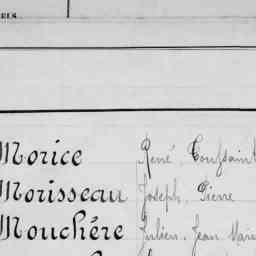 Morice René, Toussaint
Morisseau Joseph, Pierre
Mouchére Julien, Jean Marie